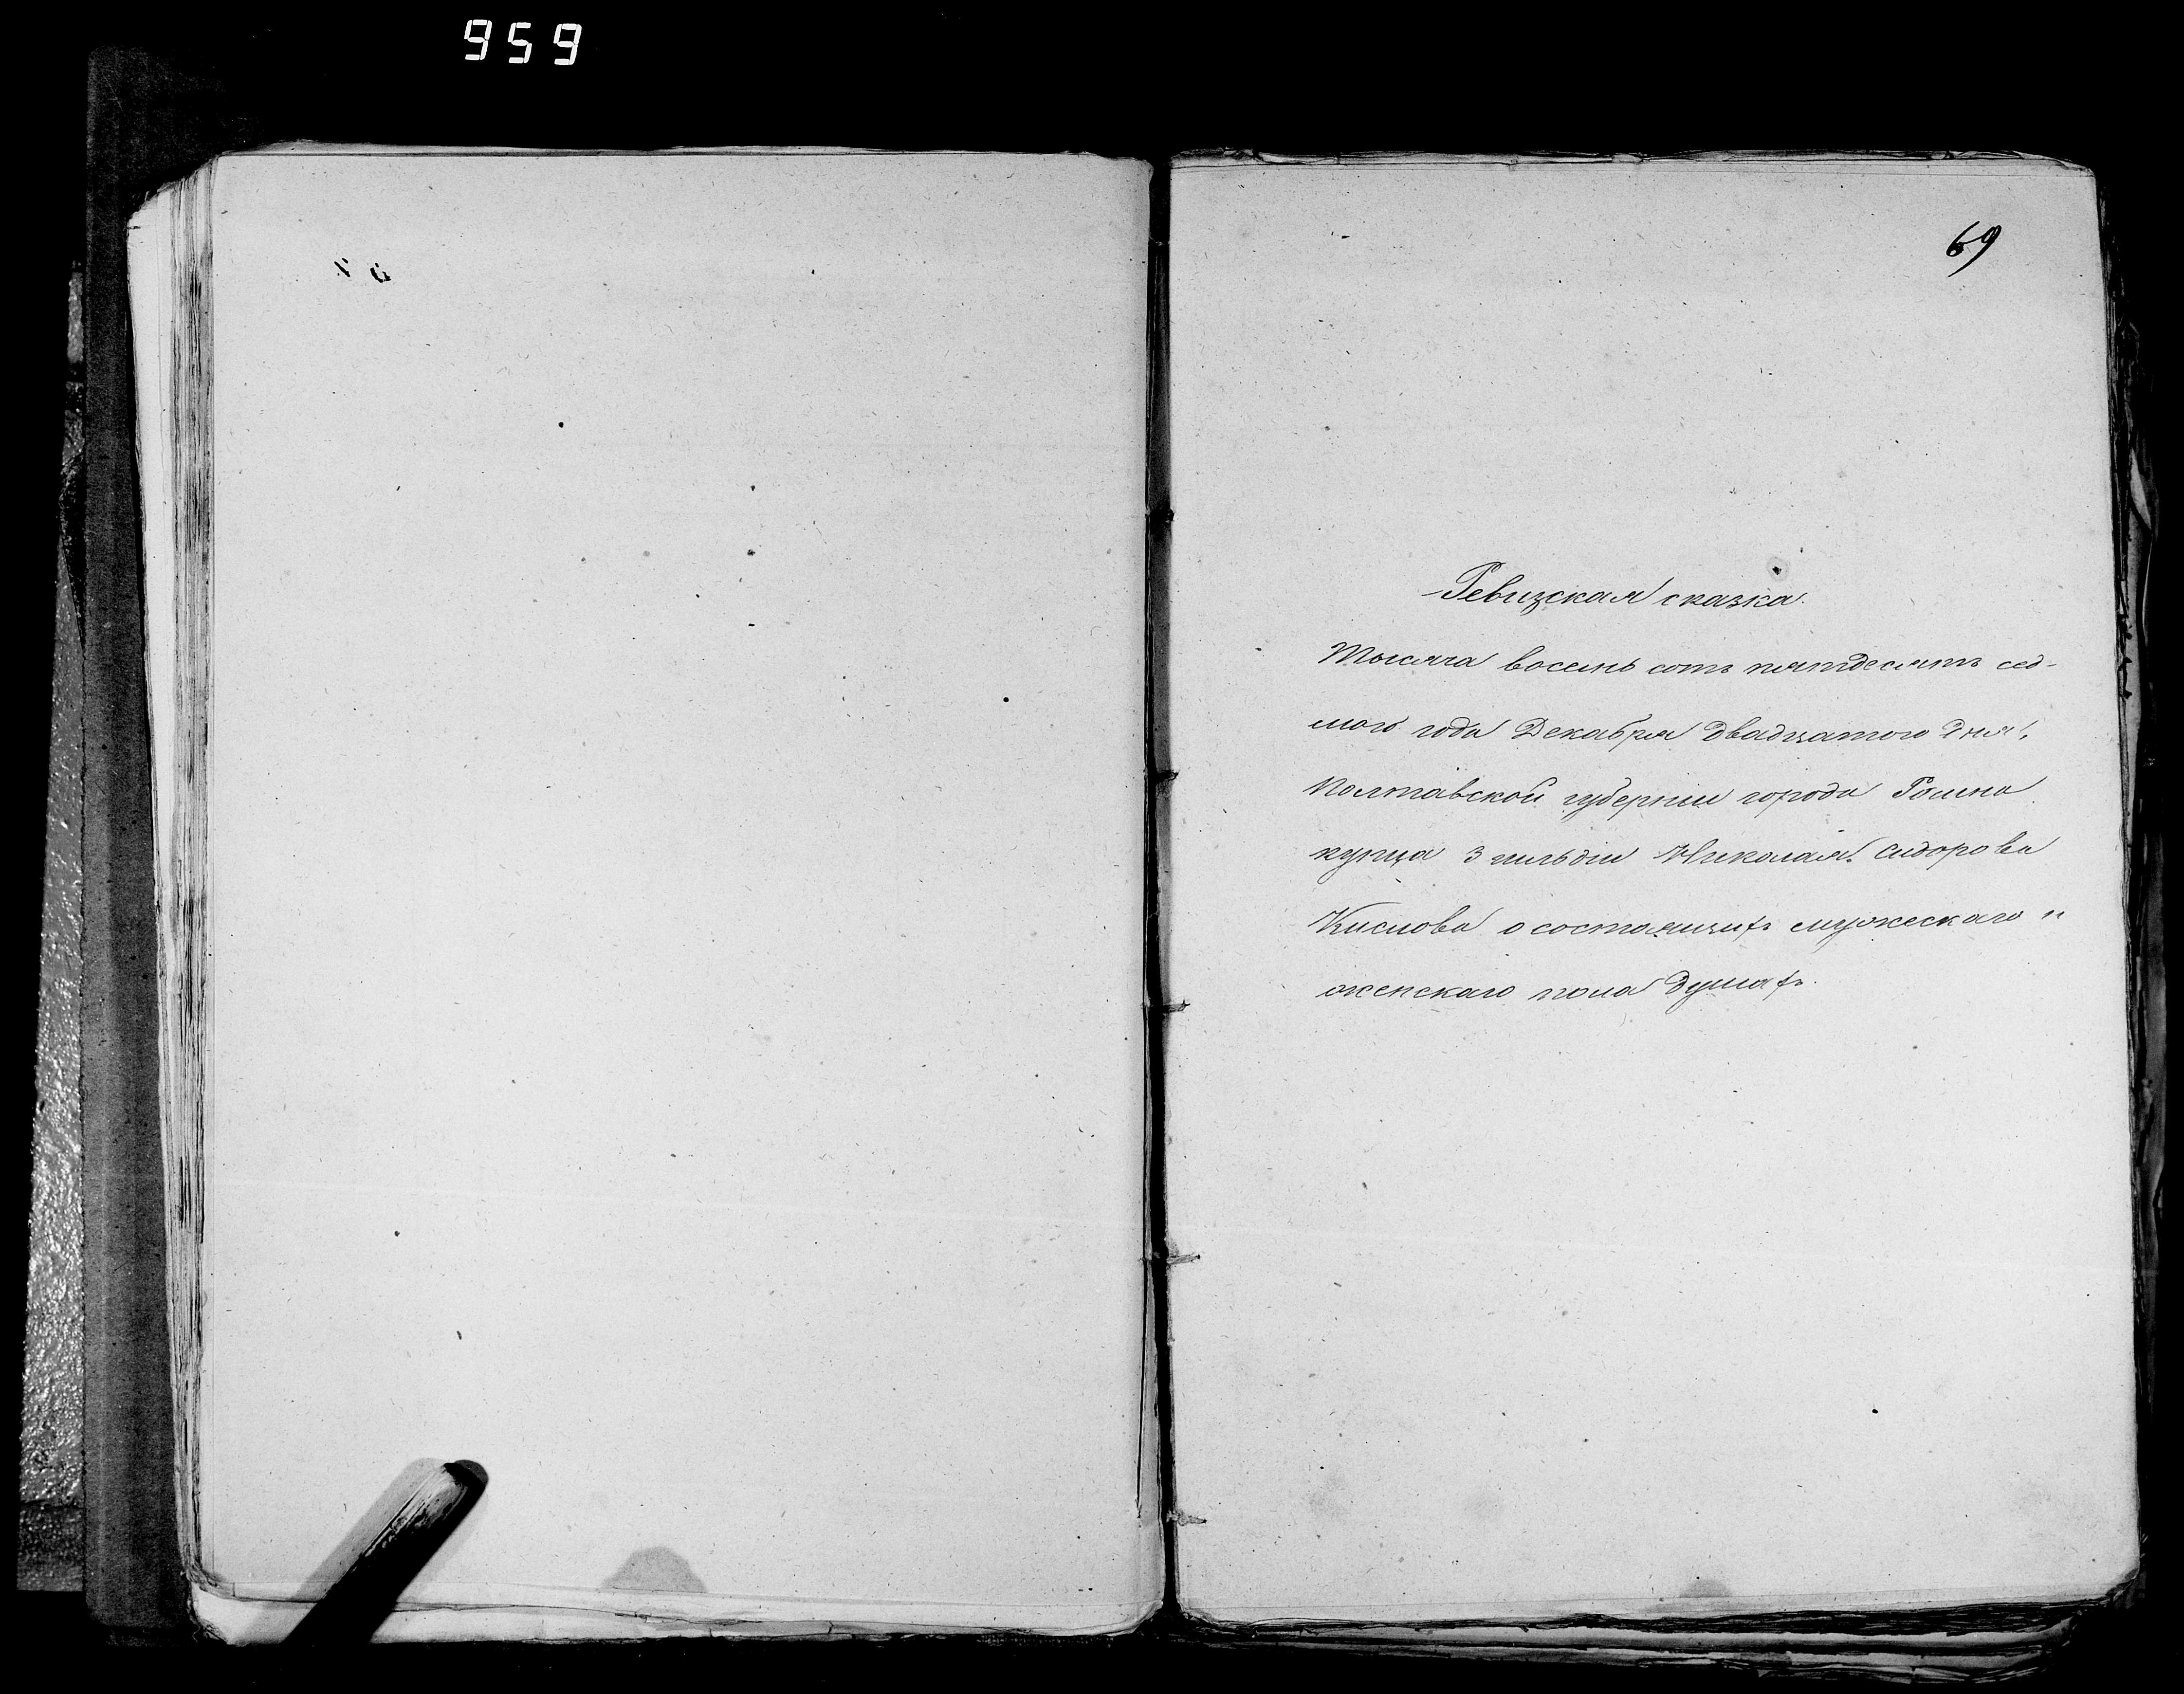 959
69
Ревизская сказка.
Тысяча восемь сотъ пятдесятъ сед-
мого года Декабря двадцатого дня,
Полтавской губернии города Ромна
купца 3 гильдіи Николая Сидорова
о состоящихъ мужескаго и
женскаго пола душахъ.